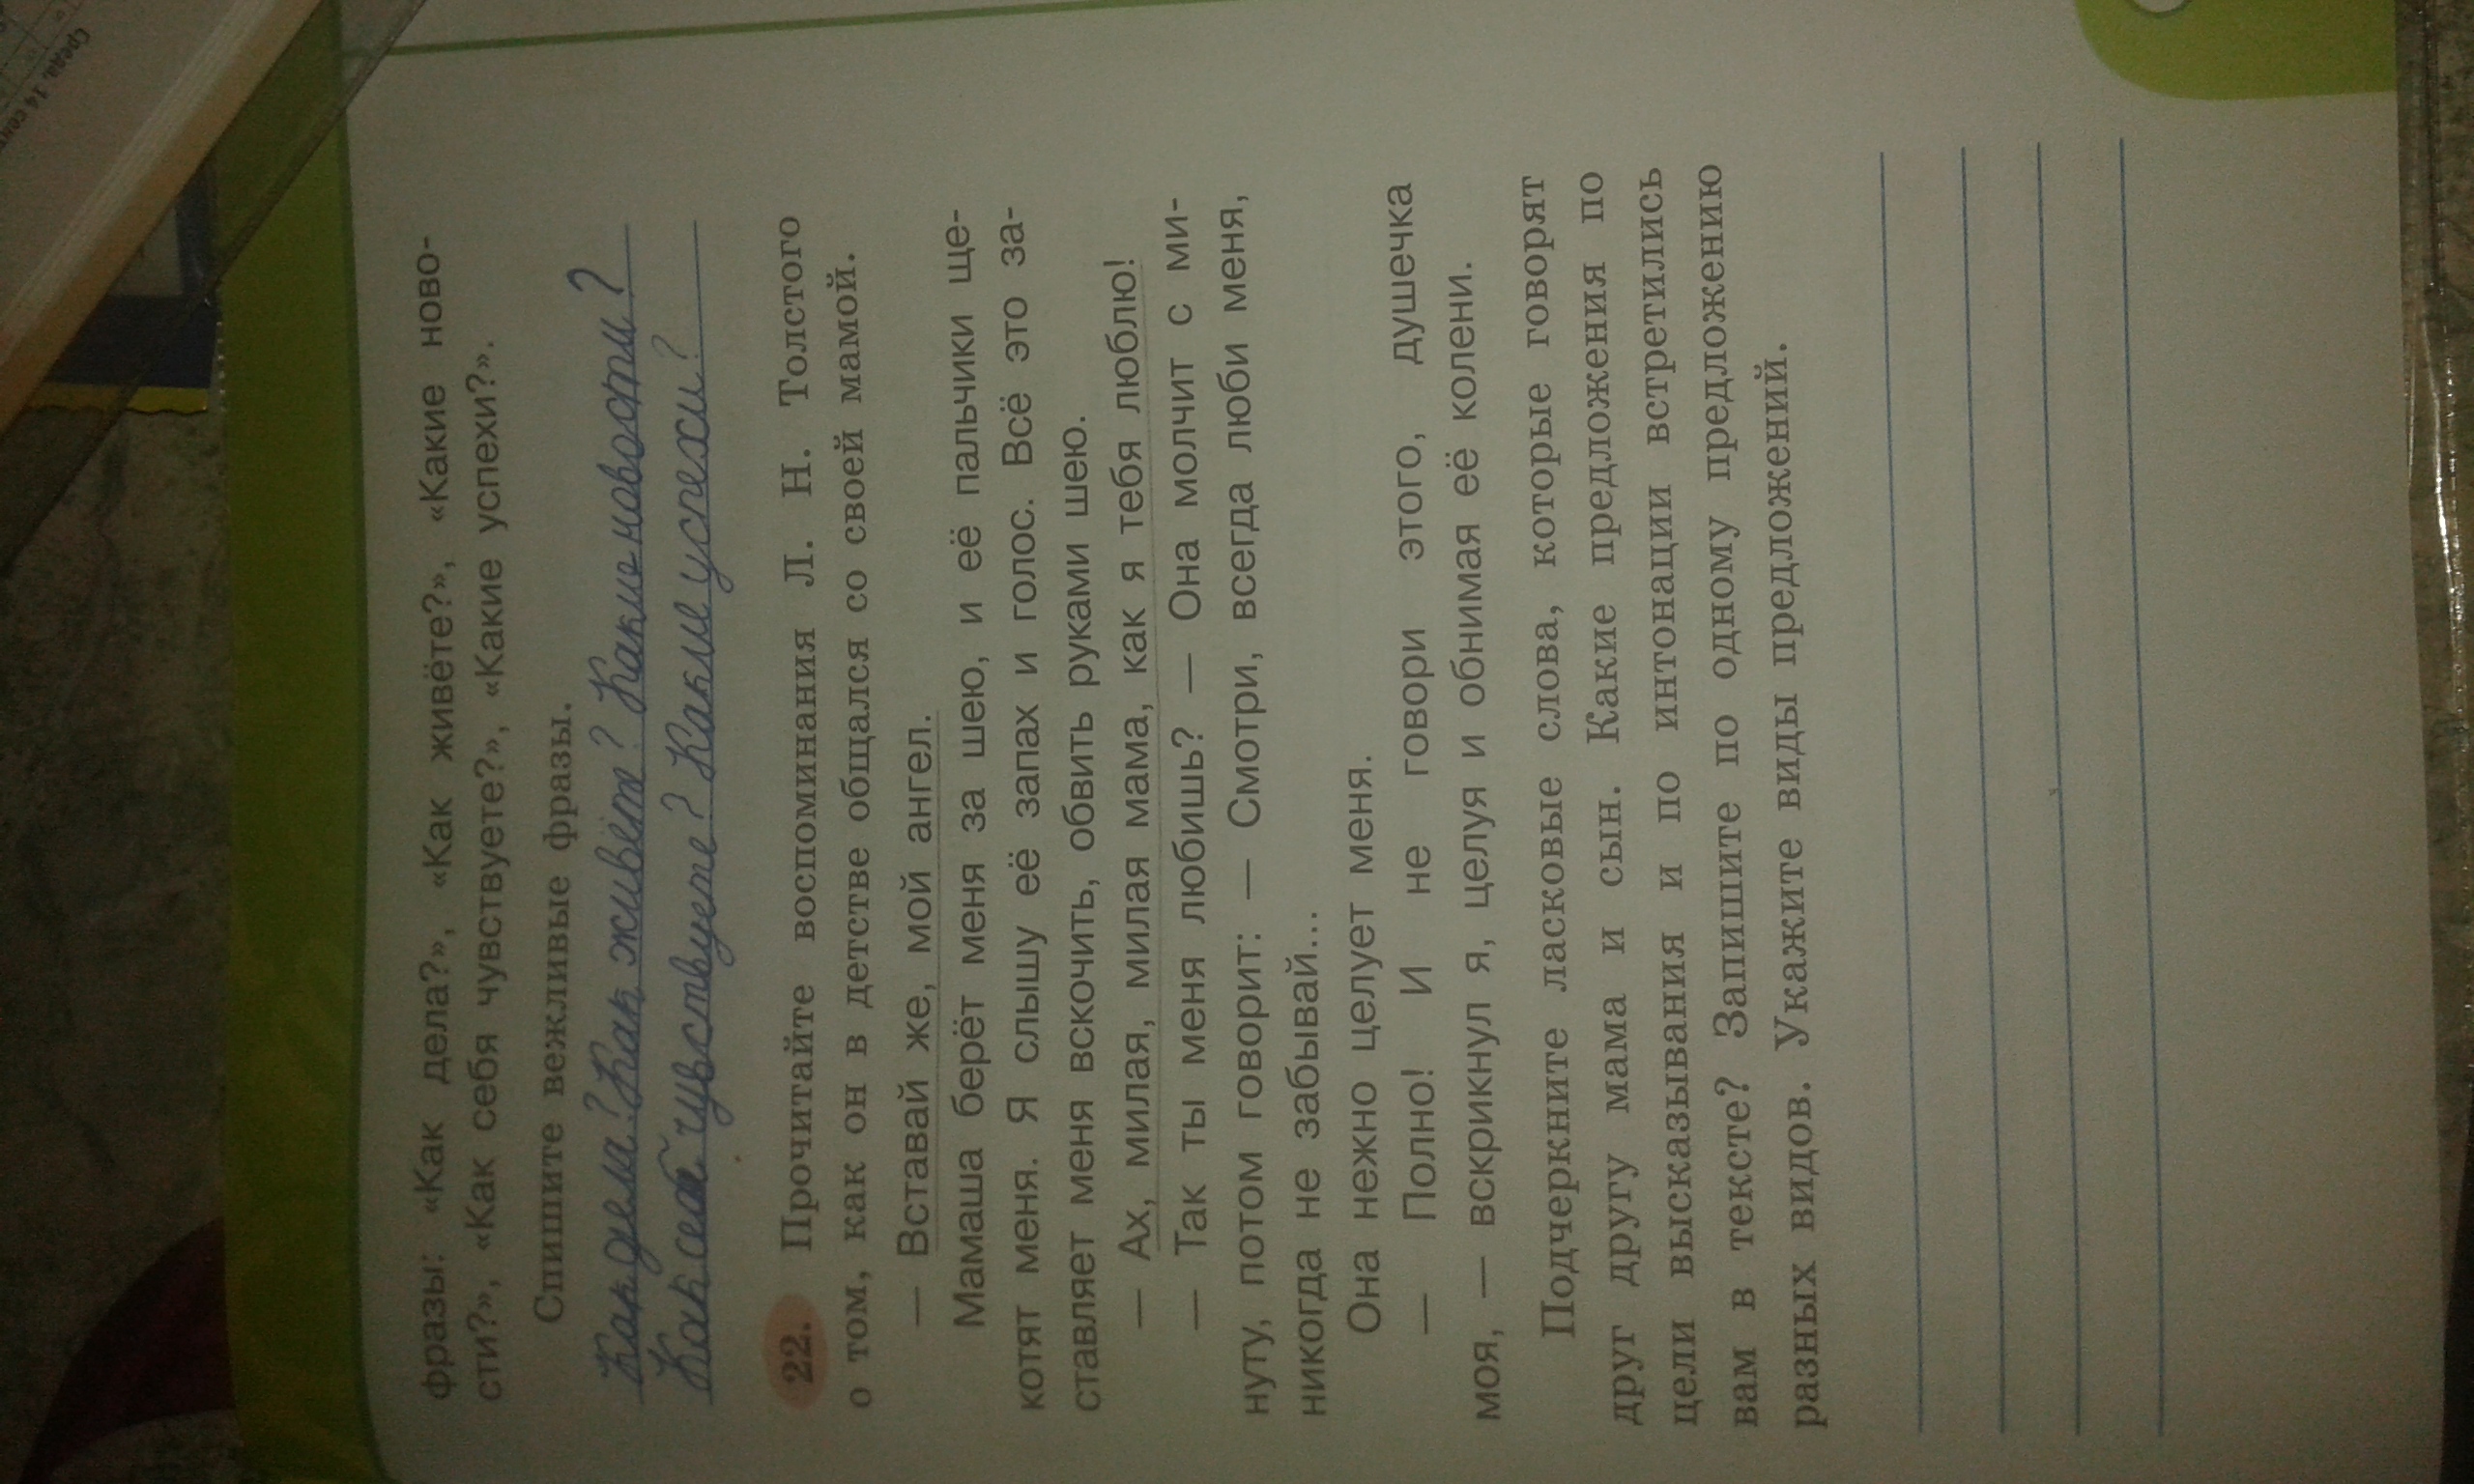 Среда, 14 сент
фразы: «Как дела?», «Как живёте?», «Какие ново-
сти?», «Как себя чувствуете?», «Какие успехи?».
Спишите вежливые фразы.
Как дела? Как живёте? Какие новости?
Как себя чувствуете? Какие успехи?
22. Прочитайте воспоминания Л. Н. Толстого
о том, как он в детстве общался со своей мамой.
— Вставай же, мой ангел.
Мамаша берёт меня за шею, и её пальчики ще-
котят меня. Я слышу её запах и голос. Всё это за-
ставляет меня вскочить, обвить руками шею.
— Ах, милая, милая мама, как я тебя люблю!
— Так ты меня любишь? — Она молчит с ми-
нуту, потом говорит: — Смотри, всегда люби меня,
никогда не забывай...
Она нежно целует меня.
— Полно! И не говори этого, душечка
моя, — вскрикнул я, целуя и обнимая её колени.
Подчеркните ласковые слова, которые говорят
друг другу мама и сын. Какие предложения по
цели высказывания и по интонации встретились
вам в тексте? Запишите по одному предложению
разных видов. Укажите виды предложений.